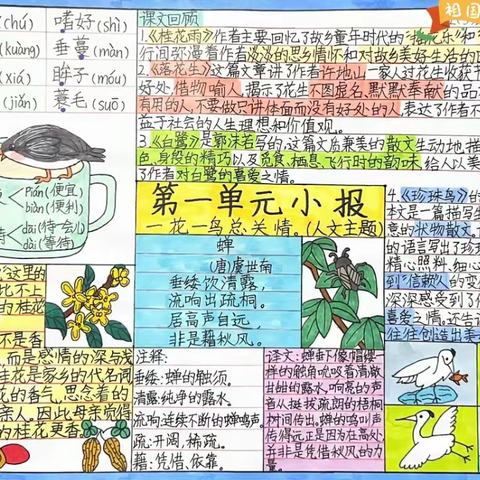 (kuàng)
(xiá)
(jiǎn)
嗜好(shì)
垂蔓(màn)
眸子(móu)
蓑毛(suō)
pián(便宜)
biàn(便利)
dāi(待会儿)
dài(等待)
课文回顾
1.《桂花雨》作者主要回忆了故乡童年时代的“摇花乐”和
行间弥漫着作者淡淡的思乡情怀和对故乡美好生活的
2.《落花生》这篇文章讲了作者许地山一家人过花生收获节
好处,借物喻人,揭示了花生不图虚名,默默奉献的品
有用的人,不要做只讲体面而没有好处的人,表达了作者不
益于社会的人生理想和价值观。
3.《白鹭》是郭沫若写的,这篇文局兼美的散文生动地描
色,身段的精巧以及觅食,栖息,飞行时的韵味,给人以美
了作者对白鹭的喜爱之情。
第一单元小报
一花一鸟总关情。(人文主题)
蝉
(唐)虞世南
垂緌饮清露,
流响出疏桐。
居高声自远,
非是藉秋风。
4.《珍珠鸟》的
本文是一篇描写生
意的状物散文,
的语言写出了珍珠
精心照料、细心
到“信赖”人的变
深深感受到了作
喜爱之情,还生
往往创造出美
这里的
比不上
的桂花
不是香
而是感情的深与浅
桂花是家乡的代名词
花的香气,思念着的
亲人,因此母亲觉得
的桂花更香。
注释:
垂緌:蝉的触须。
清露:纯净的露水。
流响:连续不断的蝉鸣声。
疏:开阔、稀疏。
藉:凭借、依靠。
译文:蝉垂下像帽缨
样的触角吮吸着清澈
甘甜的露水,响亮的声
音从挺拔疏朗的梧桐
树间传出。蝉的鸣叫声
传得远正是因为在高处,
并非是凭借秋风的力
量。
祖国